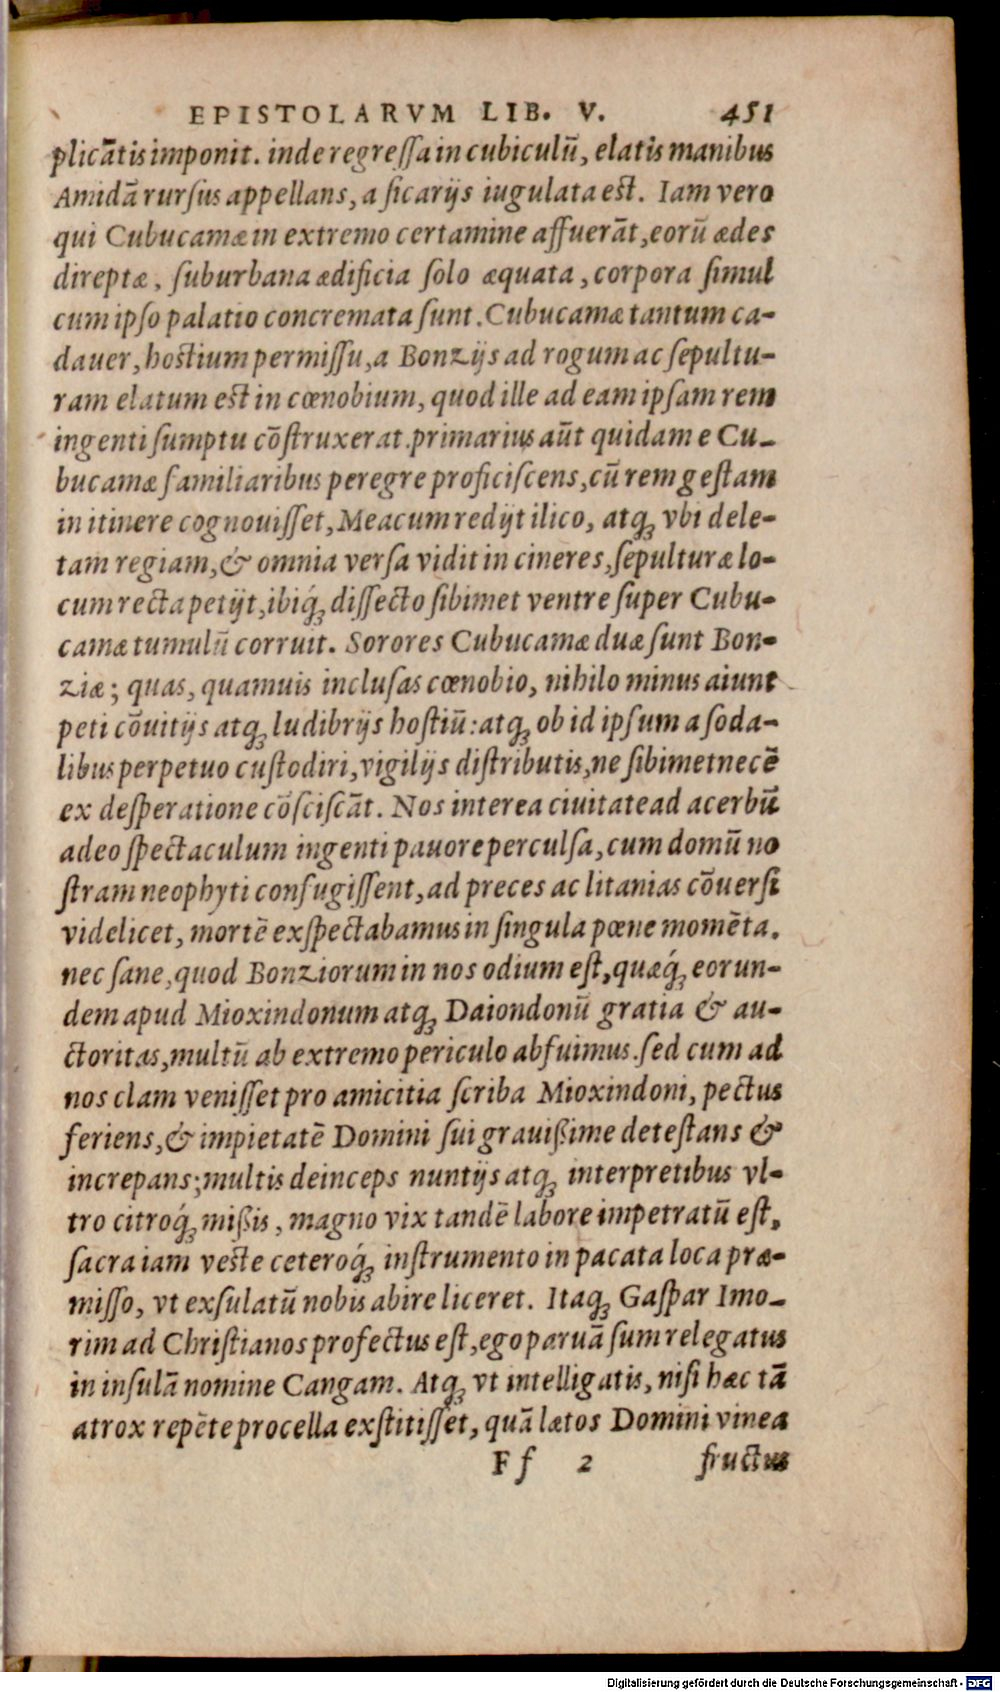 EPISTOLARVM LIB. V. 451
plicātis imponit. inde regressa in cubiculū, elatis manibus
Amidā rursus appellans, a sicarijs iugulata est. Iam vero
qui Cubucamæ in extremo certamine affuerāt, eorū ædes
direptæ, suburbana ædificia solo æquata, corpora simul
cum ipso palatio concremata sunt. Cubucamæ tantum ca-
dauer, hostium permissu, a Bonzijs ad rogum ac sepultu-
ram elatum est in cœnobium, quod ille ad eam ipsam rem
ingenti sumptu cōstruxerat. primarius aūt quidam e Cu-
bucamæ familiaribus peregre proficiscens, cū rem gestam
in itinere cognouisset, Meacum redijt ilico, atq; vbi dele-
tam regiam, & omnia versa vidit in cineres, sepulturæ lo-
cum recta petijt, ibiq́; dissecto sibimet ventre super Cubu-
camæ tumulū corruit. Sorores Cubucamæ duæ sunt Bon-
ziæ; quas, quamuis inclusas cœnobio, nihilo minus aiunt
peti cōuitijs atq; ludibrijs hostiū: atq; ob id ipsum a soda-
libus perpetuo custodiri, vigilijs distributis, ne sibimet necē
ex desperatione cōsciscāt. Nos interea ciuitate ad acerbū
adeo spectaculum ingenti pauore perculsa, cum domū no
stram neophyti confugissent, ad preces ac litanias cōuersi
videlicet, mortē exspectabamus in singula pœne momēta.
nec sane, quod Bonziorum in nos odium est, quæq́; eorun-
dem apud Mioxindonum atq; Daiondonū gratia & au-
ctoritas, multū ab extremo periculo abfuimus. sed cum ad
nos clam venisset pro amicitia scriba Mioxindoni, pectus
feriens, & impietatē Domini sui grauißime detestans &
increpans; multis deinceps nuntijs atq; interpretibus vl-
tro citroq́; mißis, magno vix tandē labore impetratū est,
sacra iam veste ceteroq́; instrumento in pacata loca præ-
misso, vt exsulatū nobis abire liceret. Itaq; Gaspar Imo-
rim ad Christianos profectus est, ego paruā sum relegatus
in insulā nomine Cangam. Atq; vt intelligatis, nisi hæc tā
atrox repēte procella exstitisset, quā lætos Domini vinea
Ff 2 fructus
Digitalisierung gefördert durch die Deutsche Forschungsgemeinschaft - DFG